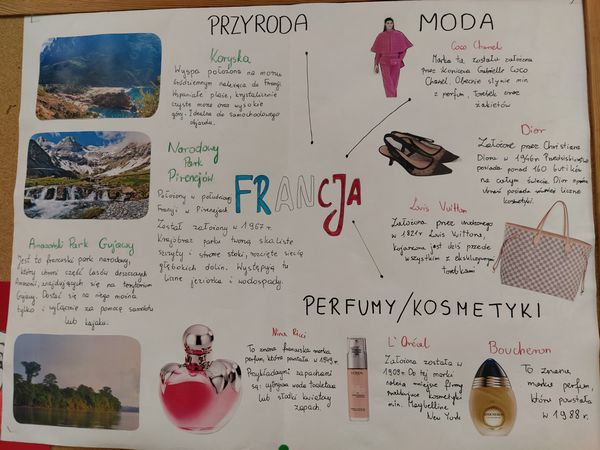 PRZYRODA
MODA
Korsyka
Wyspa położona na morzu
śródziemnym należąca do Francji.
Wspaniałe plaże, krystalicznie
czyste morze oraz wysokie
góry. Idealna do samochodowego
objazdu.
Narodowy
Park
Pirenejów
Położony w południowej
Francji w Pirenejach
Został założony w 1967 r.
Krajobraz parku tworzą skaliste
szczyty i strome stoki, rozcięte siecią
głębokich dolin. Występują tu
liczne jeziorka i wodospady.
Amazonski Park Gujawy
Jest to francuski park narodowy,
który chroni część lasów deszczowych
Amazonii, znajdujących się na terytorium
Gujany. Dostać się na niego można
tylko i wyłącznie za pomocą samolotu
lub kajaku.
FRANCJA
Coco Chanel
Marka ta została założona
przez Gabrielle Coco
Chanel. Obecnie słynie min.
z perfum, torebek oraz
żakietów
Dior
Założone przez Christiana
Diora w 1946r. Przedsiębiorstwo
posiada ponad 160 butików
na całym świecie. Dior oprócz
ubrań posiada również liczne
kosmetyki.
Louis Vuitton
Założona przez urodzonego
w 1821r Louis Vuittona,
kojarzona jest dziś przede
wszystkim z ekskluzywnymi
torebkami
PERFUMY/KOSMETYKI
Nina Ricci
To znana francuska marka
perfum, która powstała w 1949 r.
Przykładowymi zapachami
są: cytrynowa woda toaletowa
lub słodki kwiatowy
zapach.
L'Oréal
Założona została w
1909r. Do tej marki
należą mniejsze firmy
produkujące kosmetyki
min. Maybelline
New York
Boucheron
To znana
marka perfum,
która powstała
w 1988 r.